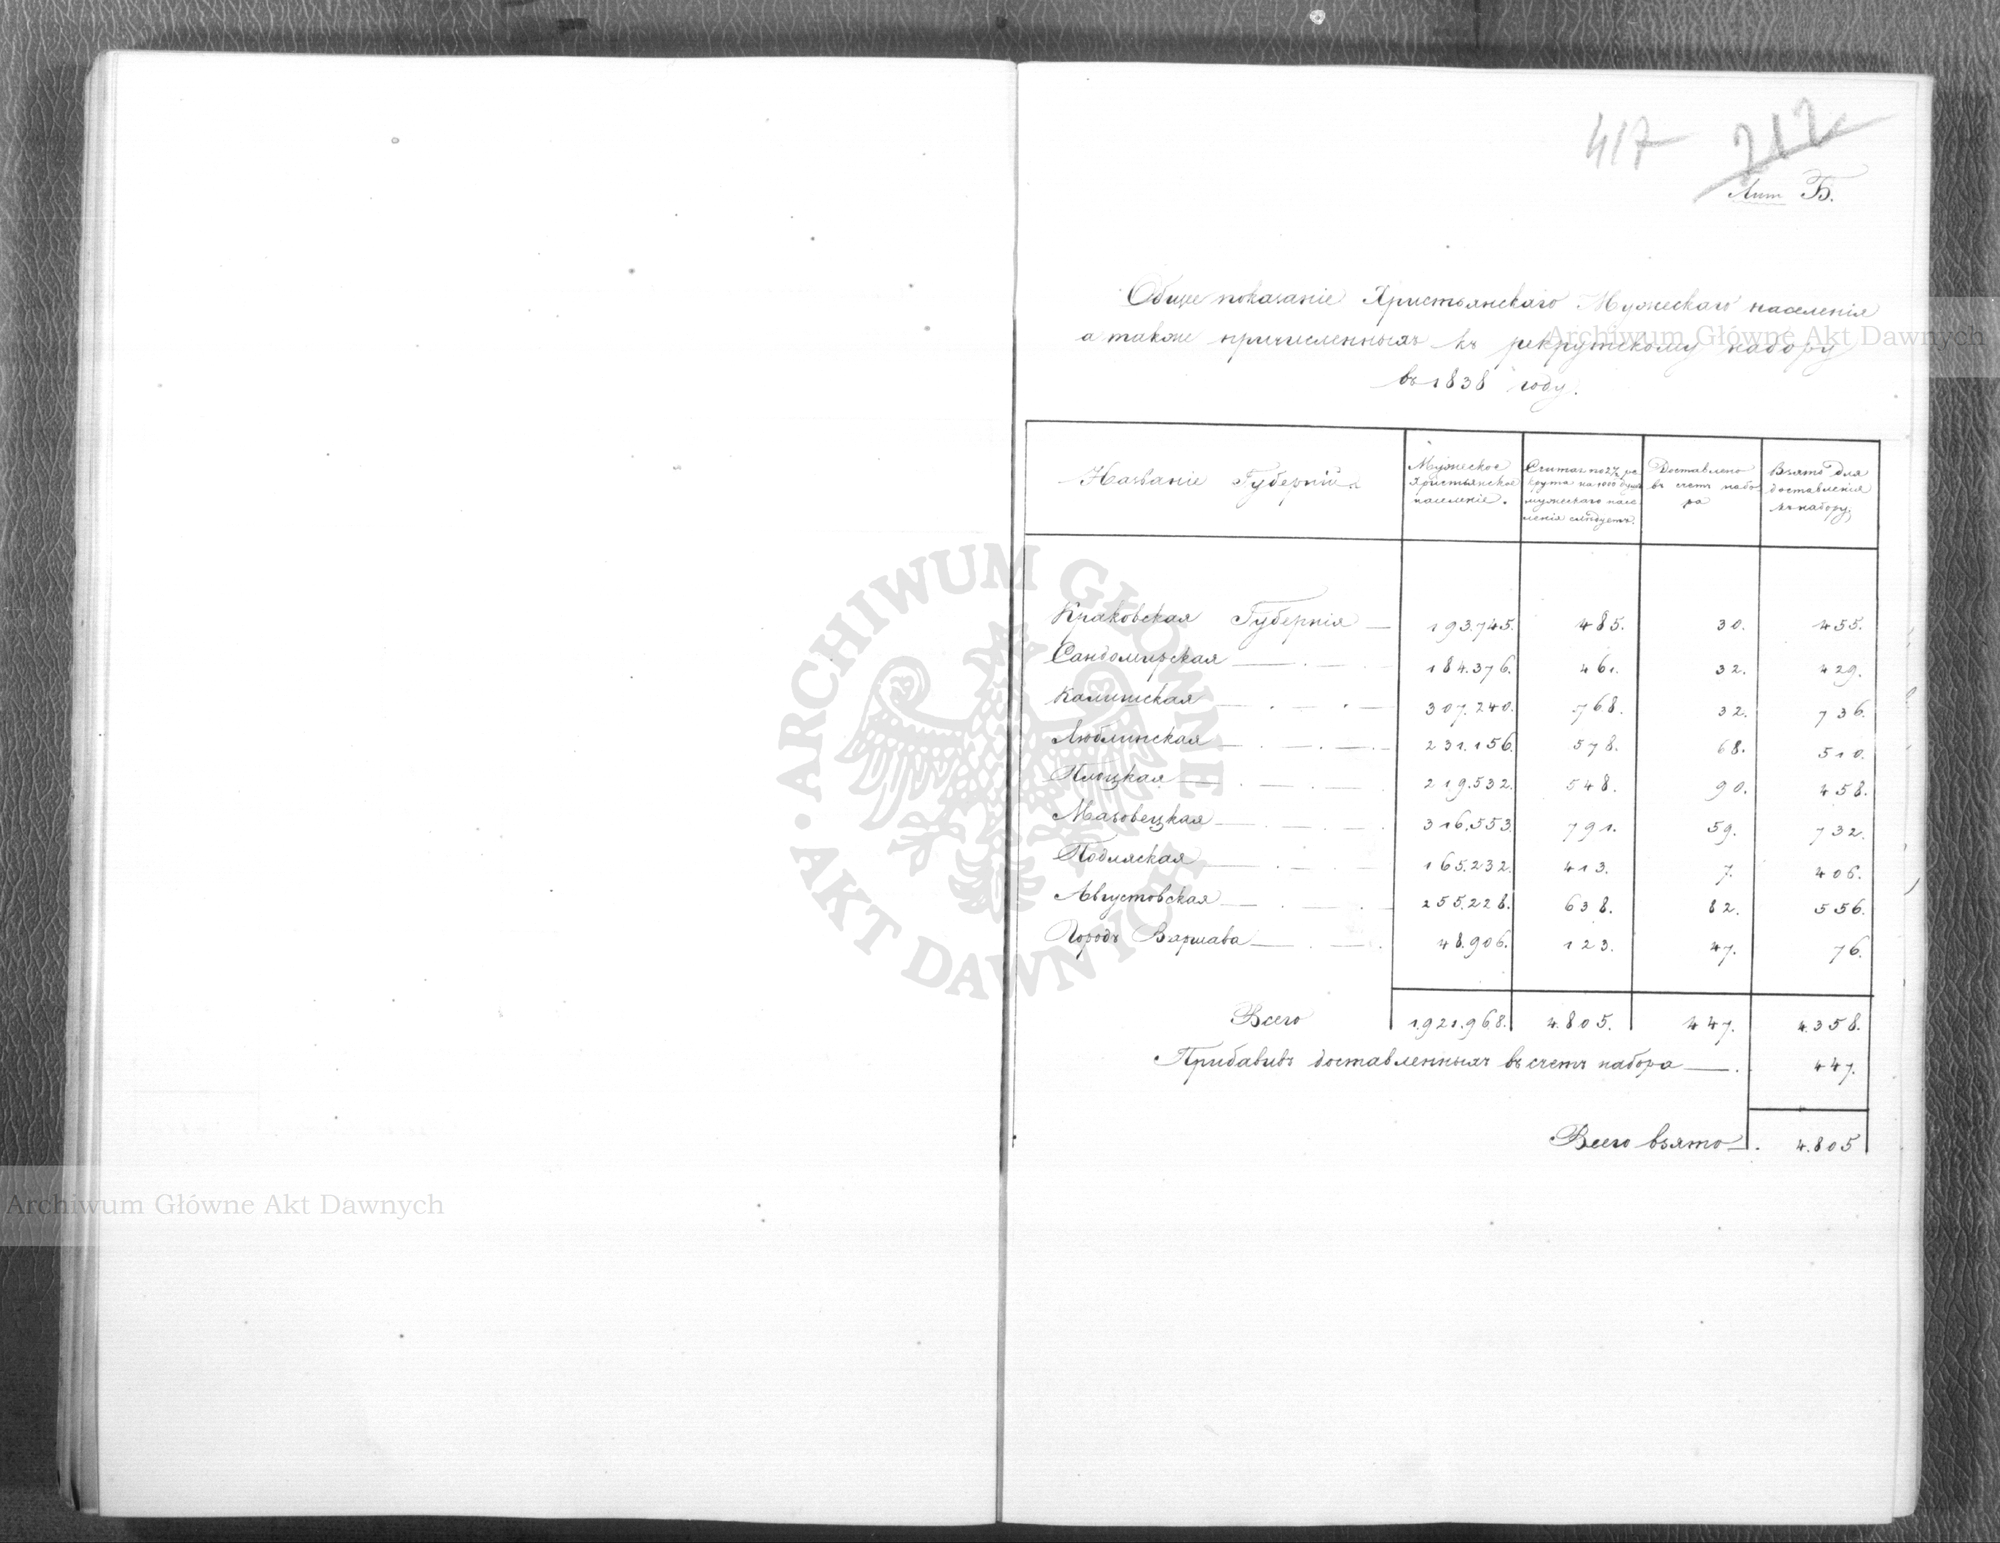 417 212
Лит Б.
Общее показаніе Христьянскаго Мужескаго населенія
а также причисленныхъ къ рекрутскому набору
въ 1838 году.
Названіе Губерній
Мужеское Христьянское населеніе.
Считая по 2½ рекрута на 1000 душъ мужескаго населенія слѣдуетъ.
Доставлено въ счетъ набора
Взято для доставленія къ набору.
Краковская Губернія — 193.745. 485. 30. 455.
Сандомирская — 184.376. 461. 32. 429.
Калишская — 307.240. 768. 32. 736.
Люблинская — 231.156. 578. 68. 510.
Плоцкая — 219.532. 548. 90. 458.
Мазовецкая — 316.553. 791. 59. 732.
Подляская — 165.232. 413. 7. 406.
Августовская — 255.228. 638. 82. 556.
Городъ Варшава — 48.906. 123. 47. 76.
Всего 1.921.968. 4.805. 447. 4.358.
Прибавивъ доставленныхъ въ счетъ набора — 447.
Всего взято — 4.805
Archiwum Główne Akt Dawnych
ARCHIWUM GŁÓWNE · AKT DAWNYCH ·
Archiwum Główne Akt Dawnych